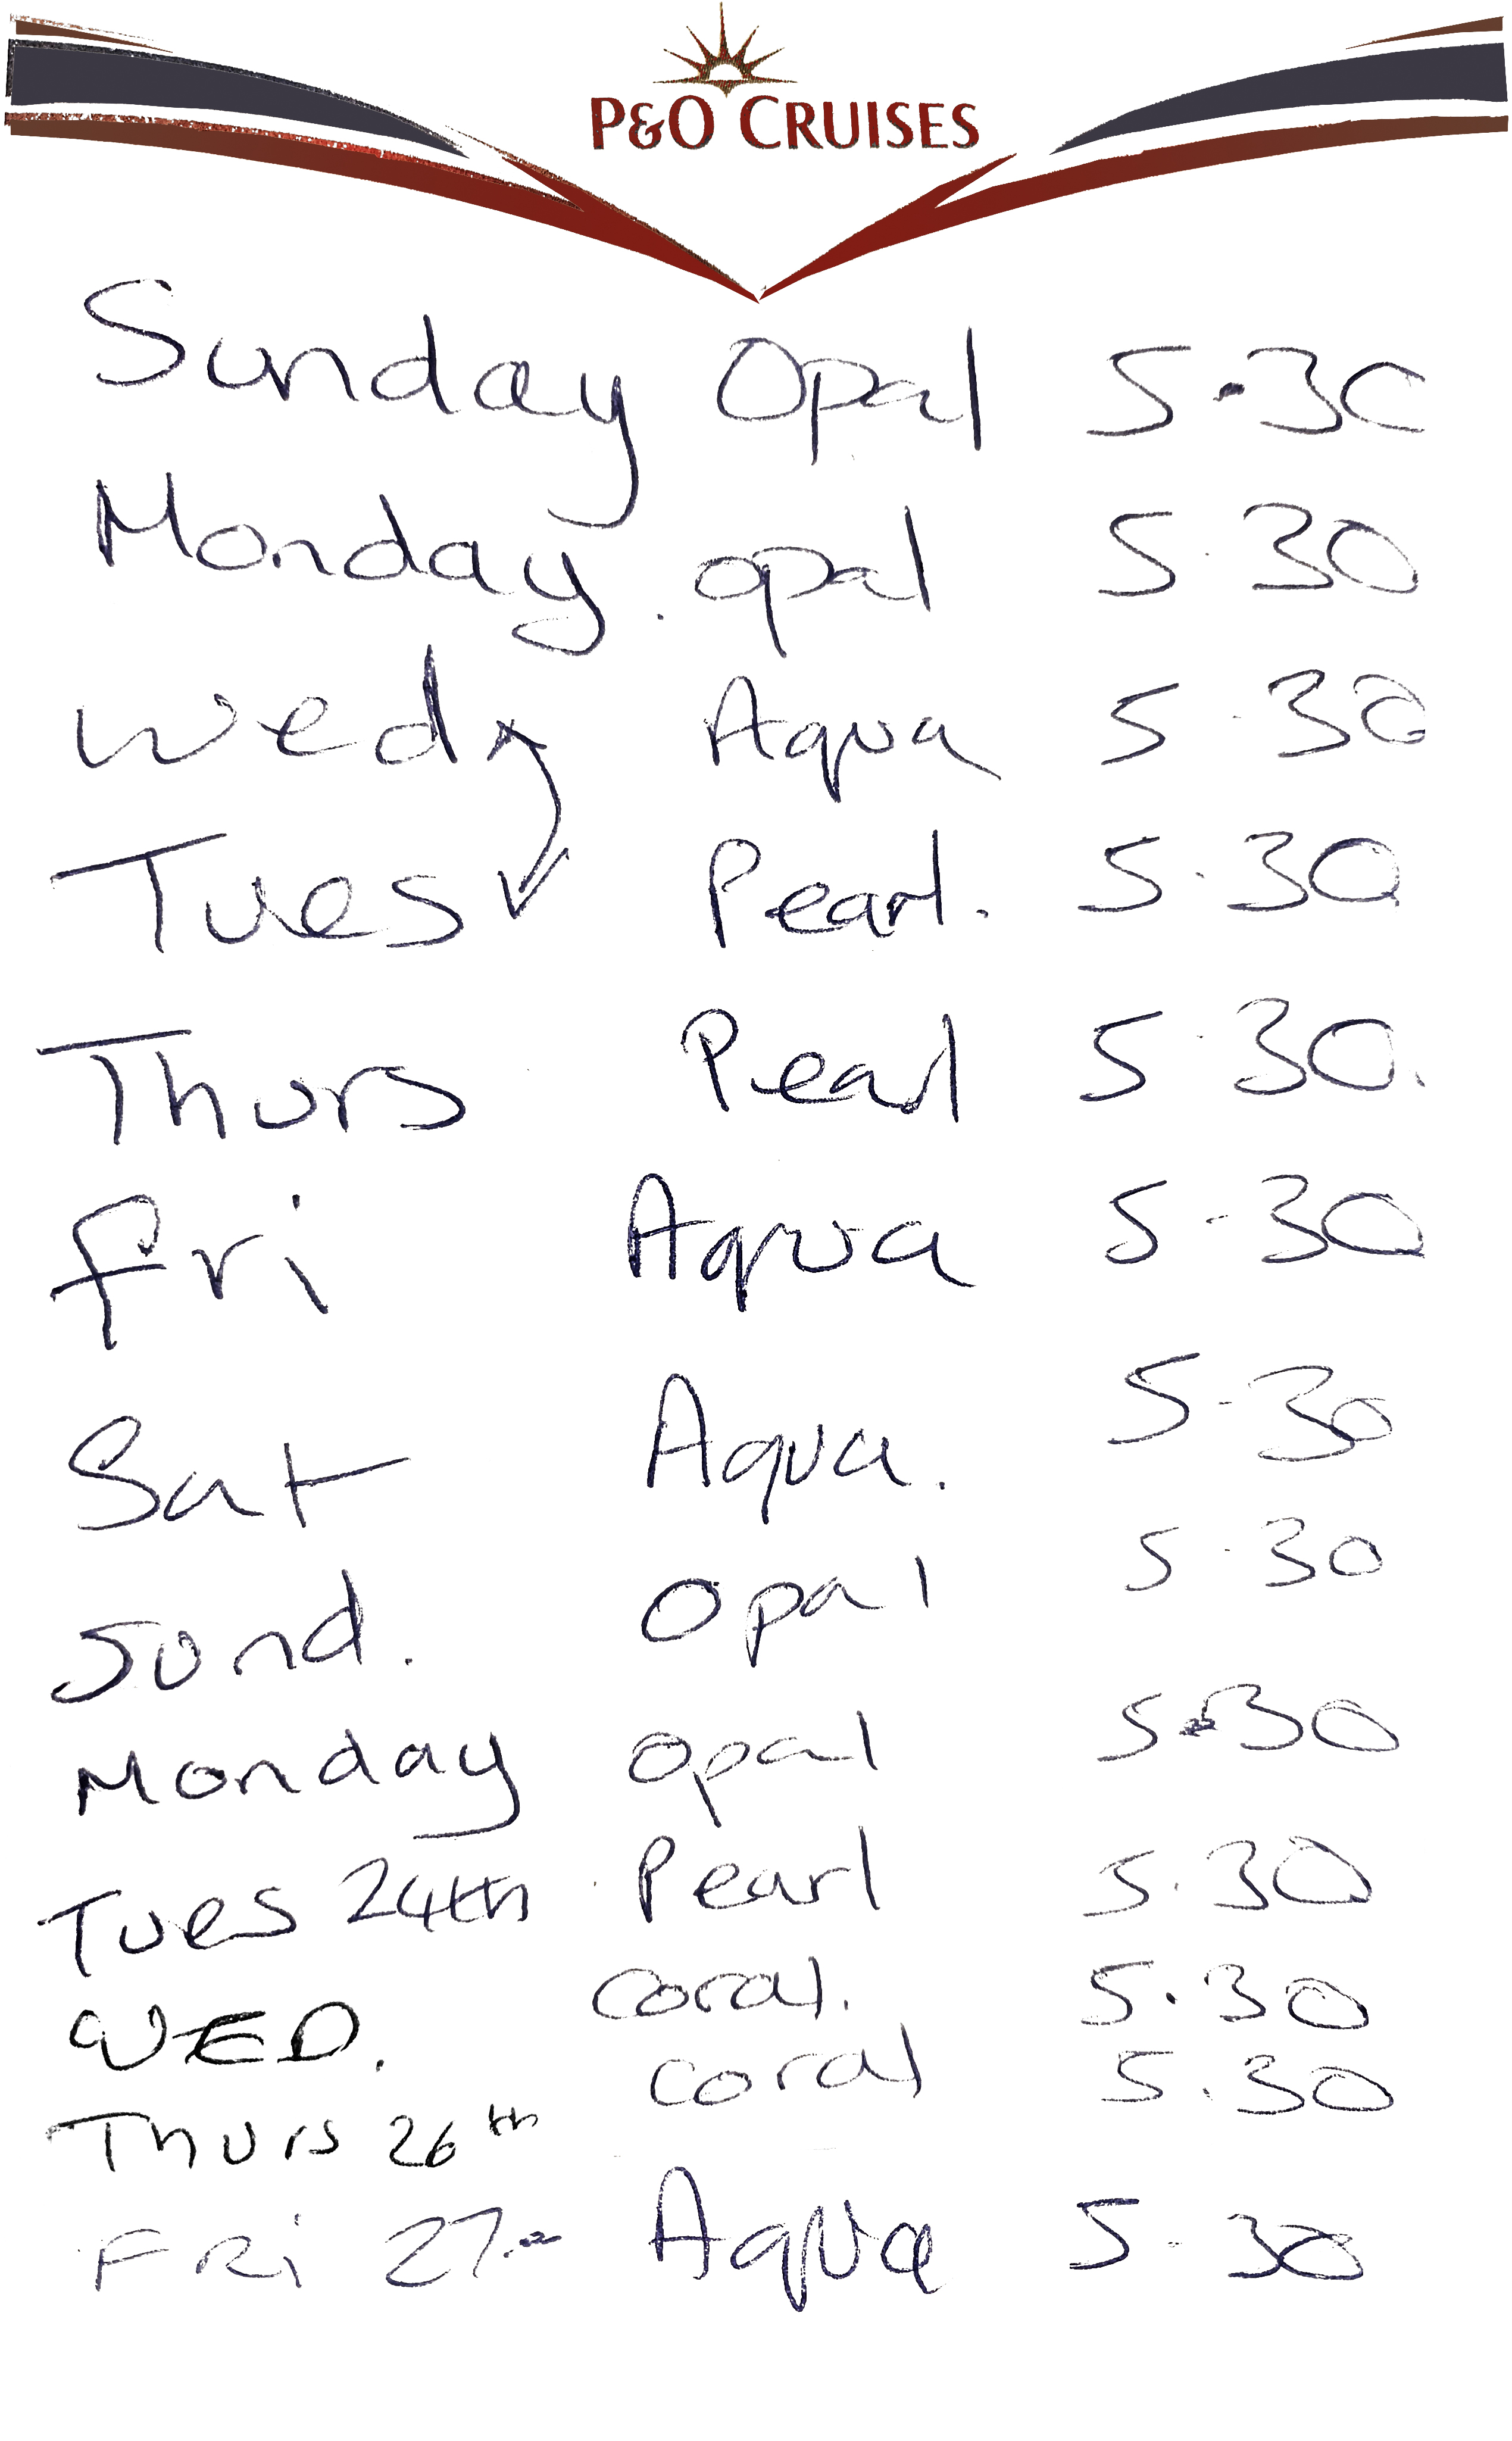 P&O CRUISES
Sunday Opal 5.30
Monday. opal 5.30
Wed Aqua 5.30
Tues Pearl. 5.30
Thurs Pearl 5.30.
fri Aqua 5-30
Sat Aqua. 5-30
Sund. Opal 5-30
Monday opal 5.30
Tues 24th Pearl 5.30
WED. coral. 5.30
Thurs 26th coral 5.30
FRi 27 Aqua 5-30